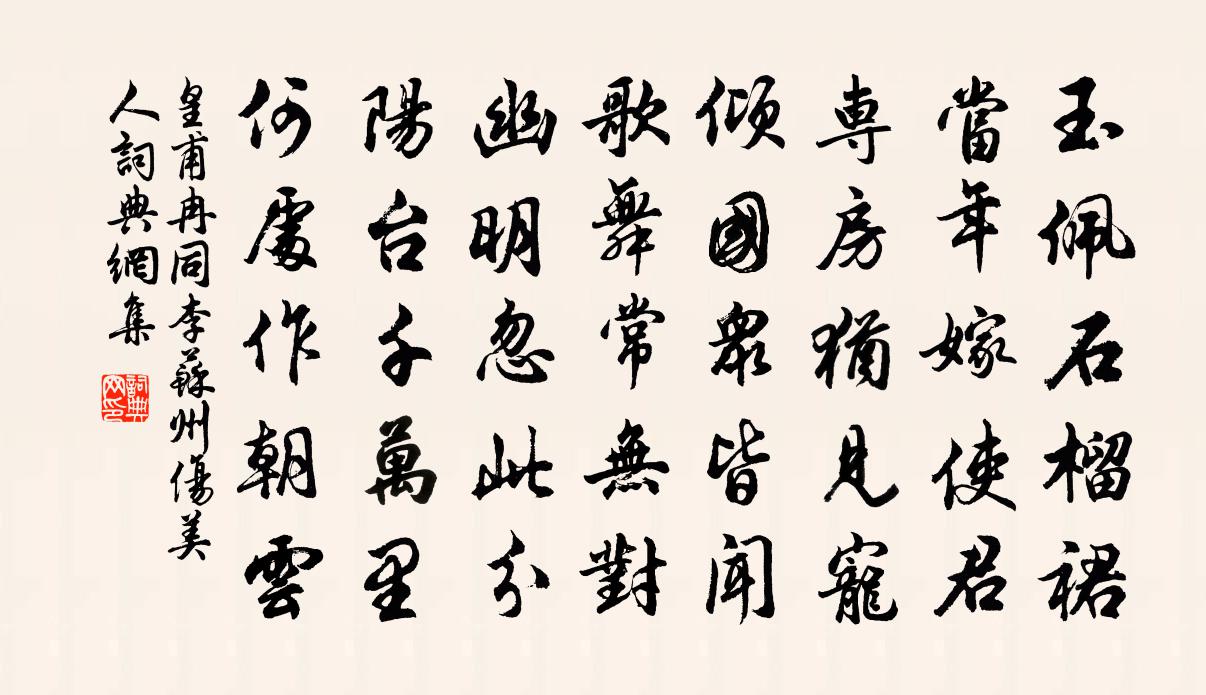 玉佩石榴裙
當年嫁使君
専房猶見寵
傾國衆皆聞
歌舞常無對
幽明忽此分
陽台千萬里
何處作朝雲
皇甫冉同李蘇州傷美
人詞典網集
詞典
网印